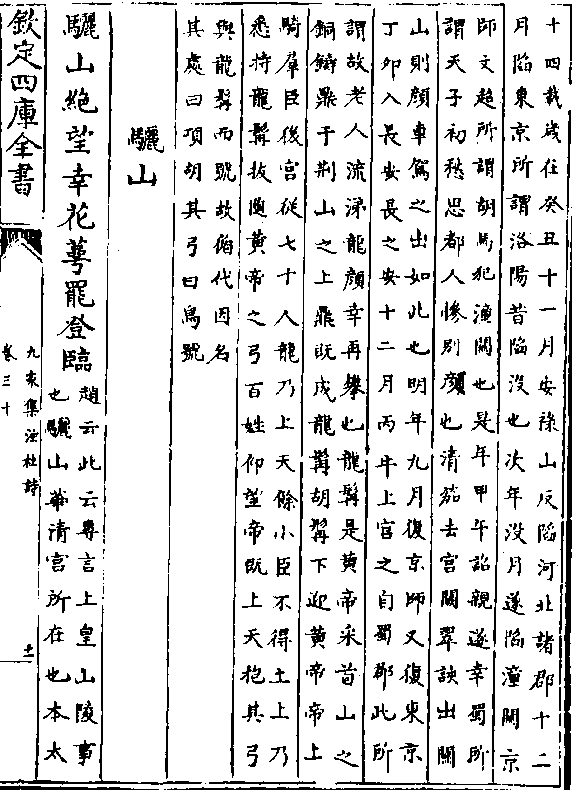 十四載歲在癸丑十一月安祿山反陷河北諸郡十二
月陷東京所謂洛陽昔陷没也次年没月遂陷潼關京
師文趙所謂胡馬犯潼關也是年甲午詔親遂幸蜀所
謂天子初愁思都人慘别顔也清笳去宫闕翠詇出關
山則顔車駕之出如此也明年九月復京師又復東京
丁夘入長安長之安十二月丙午上宫之自蜀郡此所
謂故老人流涕龍顔幸再攀也龍髯是黄帝采首山之
銅鑄鼎于荆山之上鼎既成龍髯胡髯下迎黄帝帝上
騎羣臣後宫從七十人龍乃上天餘小臣不得土上乃
悉持龍髯抜墮黄帝之弓百姓仰望帝既上天抱其弓
與龍髯而號故後代因名
其處曰項胡其弓曰烏號
驪山
驪山絶望幸花萼罷登臨
趙云此云專言上皇山陵事
也驪山華清宫所在也本太
欽定四庫全書
九家集注杜詩
卷三十